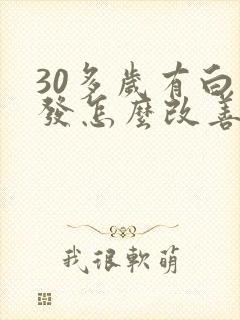 30多歲有白
發怎麼改善
我很軟萌